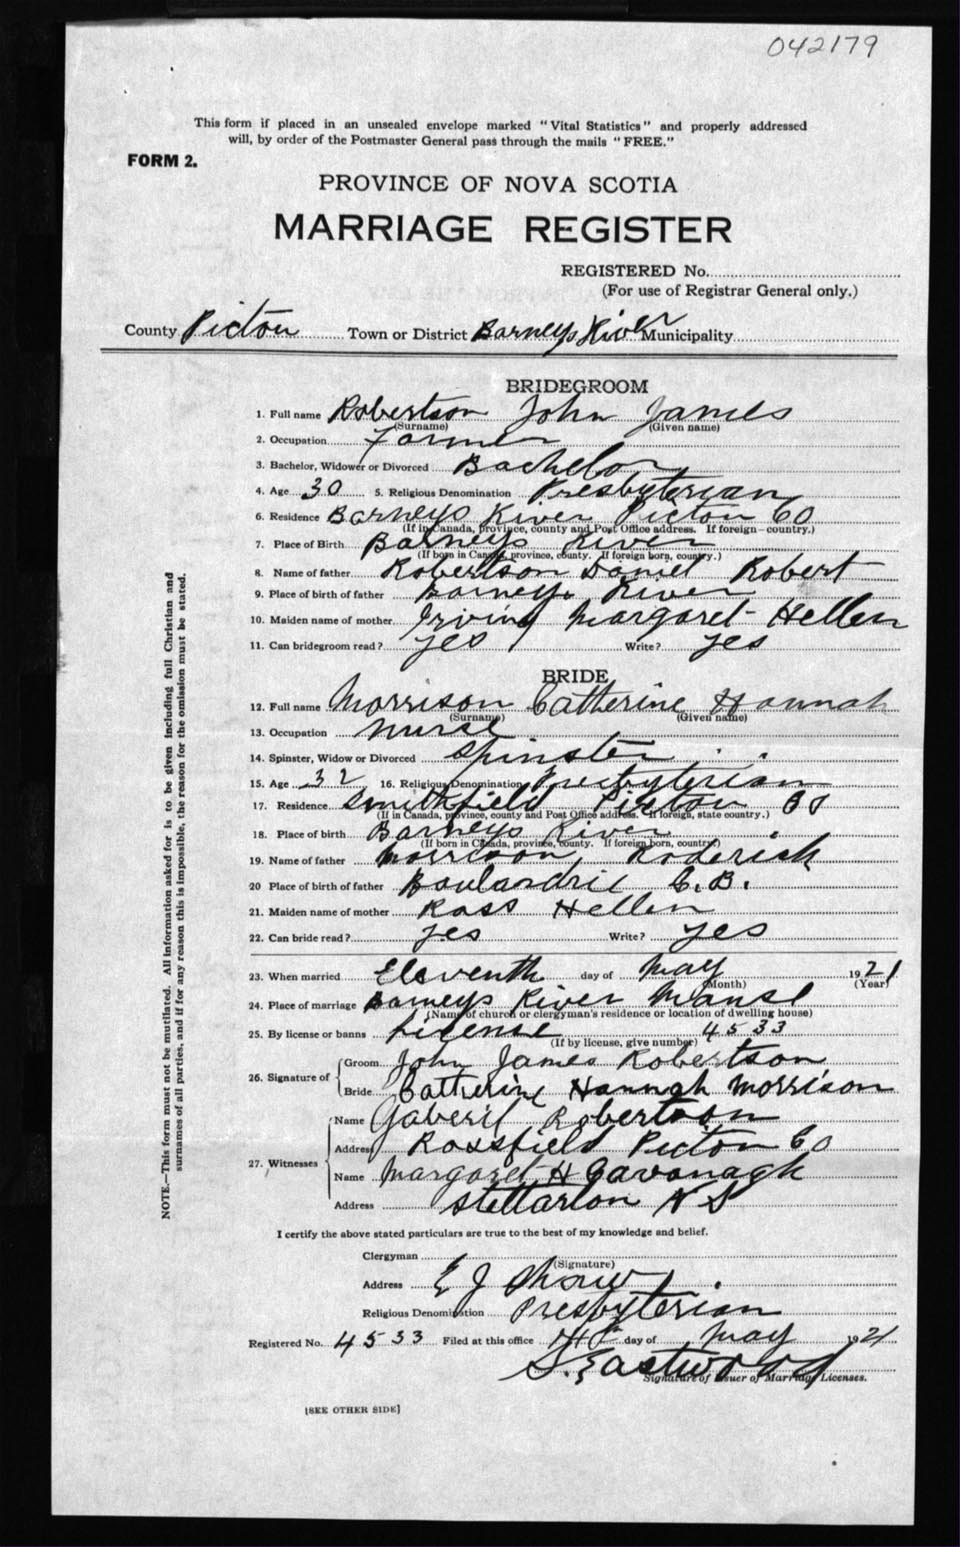 042179
This form if placed in an unsealed envelope marked "Vital Statistics" and properly addressed
will, by order of the Postmaster General pass through the mails "FREE."
FORM 2.
PROVINCE OF NOVA SCOTIA
MARRIAGE REGISTER
REGISTERED No.
(For use of Registrar General only.)
County Pictou Town or District Barneys River Municipality
BRIDEGROOM
1. Full name Robertson John James
(Surname) (Given name)
2. Occupation Farmer
3. Bachelor, Widower or Divorced Bachelor
4. Age 30 5. Religious Denomination Presbyterian
6. Residence Barneys River Pictou Co
(If in Canada, province, county and Post Office address. If foreign—country.)
7. Place of Birth Barneys River
(If born in Canada, province, county. If foreign born, country.)
8. Name of father Robertson Daniel Robert
9. Place of birth of father Barneys River
10. Maiden name of mother Irving Margaret Hellen
11. Can bridegroom read? yes Write? yes
BRIDE
12. Full name Morrison Catherine Hannah
(Surname) (Given name)
13. Occupation Nurse
14. Spinster, Widow or Divorced Spinster
15. Age 32 16. Religious Denomination Presbyterian
17. Residence Smithfield Pictou Co
(If in Canada, province, county and Post Office address. If foreign, state country.)
18. Place of birth Barneys River
(If born in Canada, province, county. If foreign born, country)
19. Name of father Morrison Roderick
20 Place of birth of father C. B.
21. Maiden name of mother Ross Hellen
22. Can bride read? yes Write? yes
23. When married Eleventh day of May 1921
(Month) (Year)
24. Place of marriage Barneys River Manse
(Name of church or clergyman's residence or location of dwelling house)
25. By license or banns License 4533
(If by license, give number)
26. Signature of
Groom John James Robertson
Bride Catherine Hannah Morrison
27. Witnesses
Name Gaberil Robertson
Address Rossfield Pictou Co
Name Margaret H Cavanagh
Address Stellarton N S
I certify the above stated particulars are true to the best of my knowledge and belief.
Clergyman
(Signature)
Address E J
Religious Denomination Presbyterian
Registered No. 4533 Filed at this office day of May 1921
S. Eastwood
Signature of Issuer of Marriage Licenses.
[SEE OTHER SIDE]
NOTE.—This form must not be mutilated. All information asked for is to be given including full Christian and
surnames of all parties, and if for any reason this is impossible, the reason for the omission must be stated.